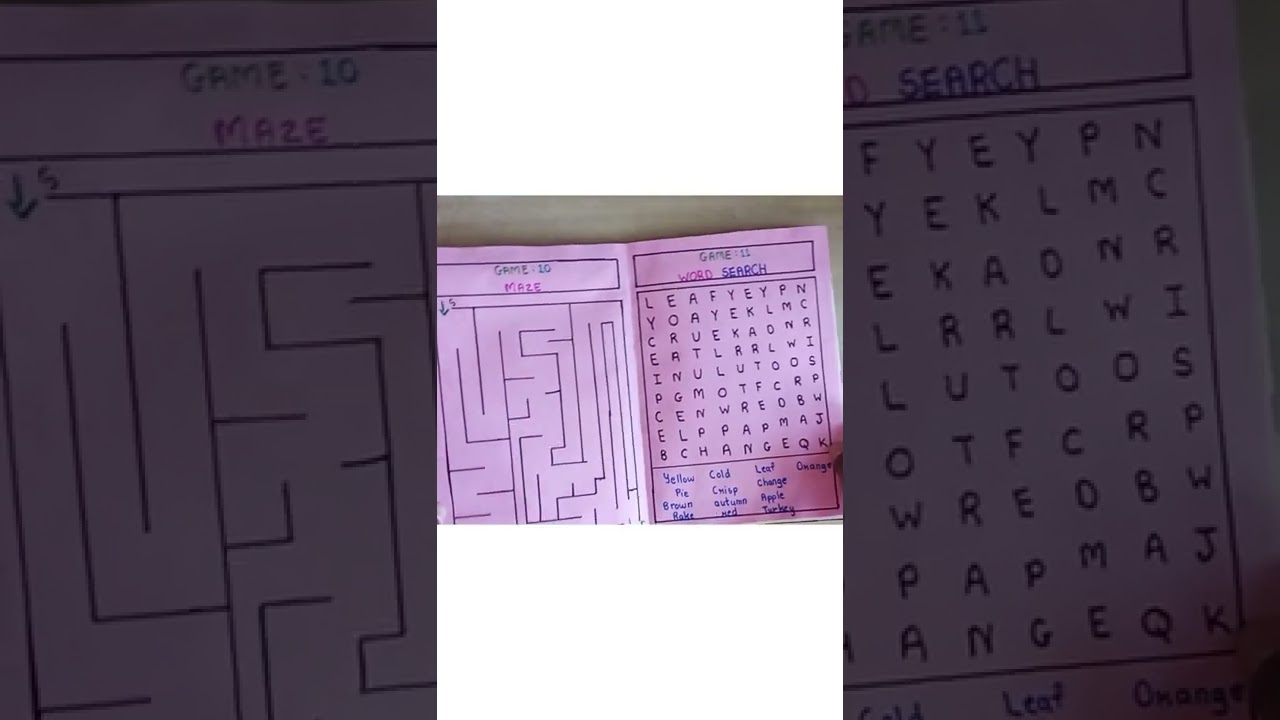 GAME : 10
MAZE
S
GAME : 11
WORD SEARCH
L E A F Y E Y P N
Y O A Y E K L M C
C R U E K A O N R
E A T L R R L W I
I N U L U T O O S
P G M O T F C R P
C E N W R E D B W
E L P P A P M A J
B C H A N G E Q K
Yellow Cold Leaf Orange
Pie Crisp Change
Brown autumn Apple
Rake red Turkey